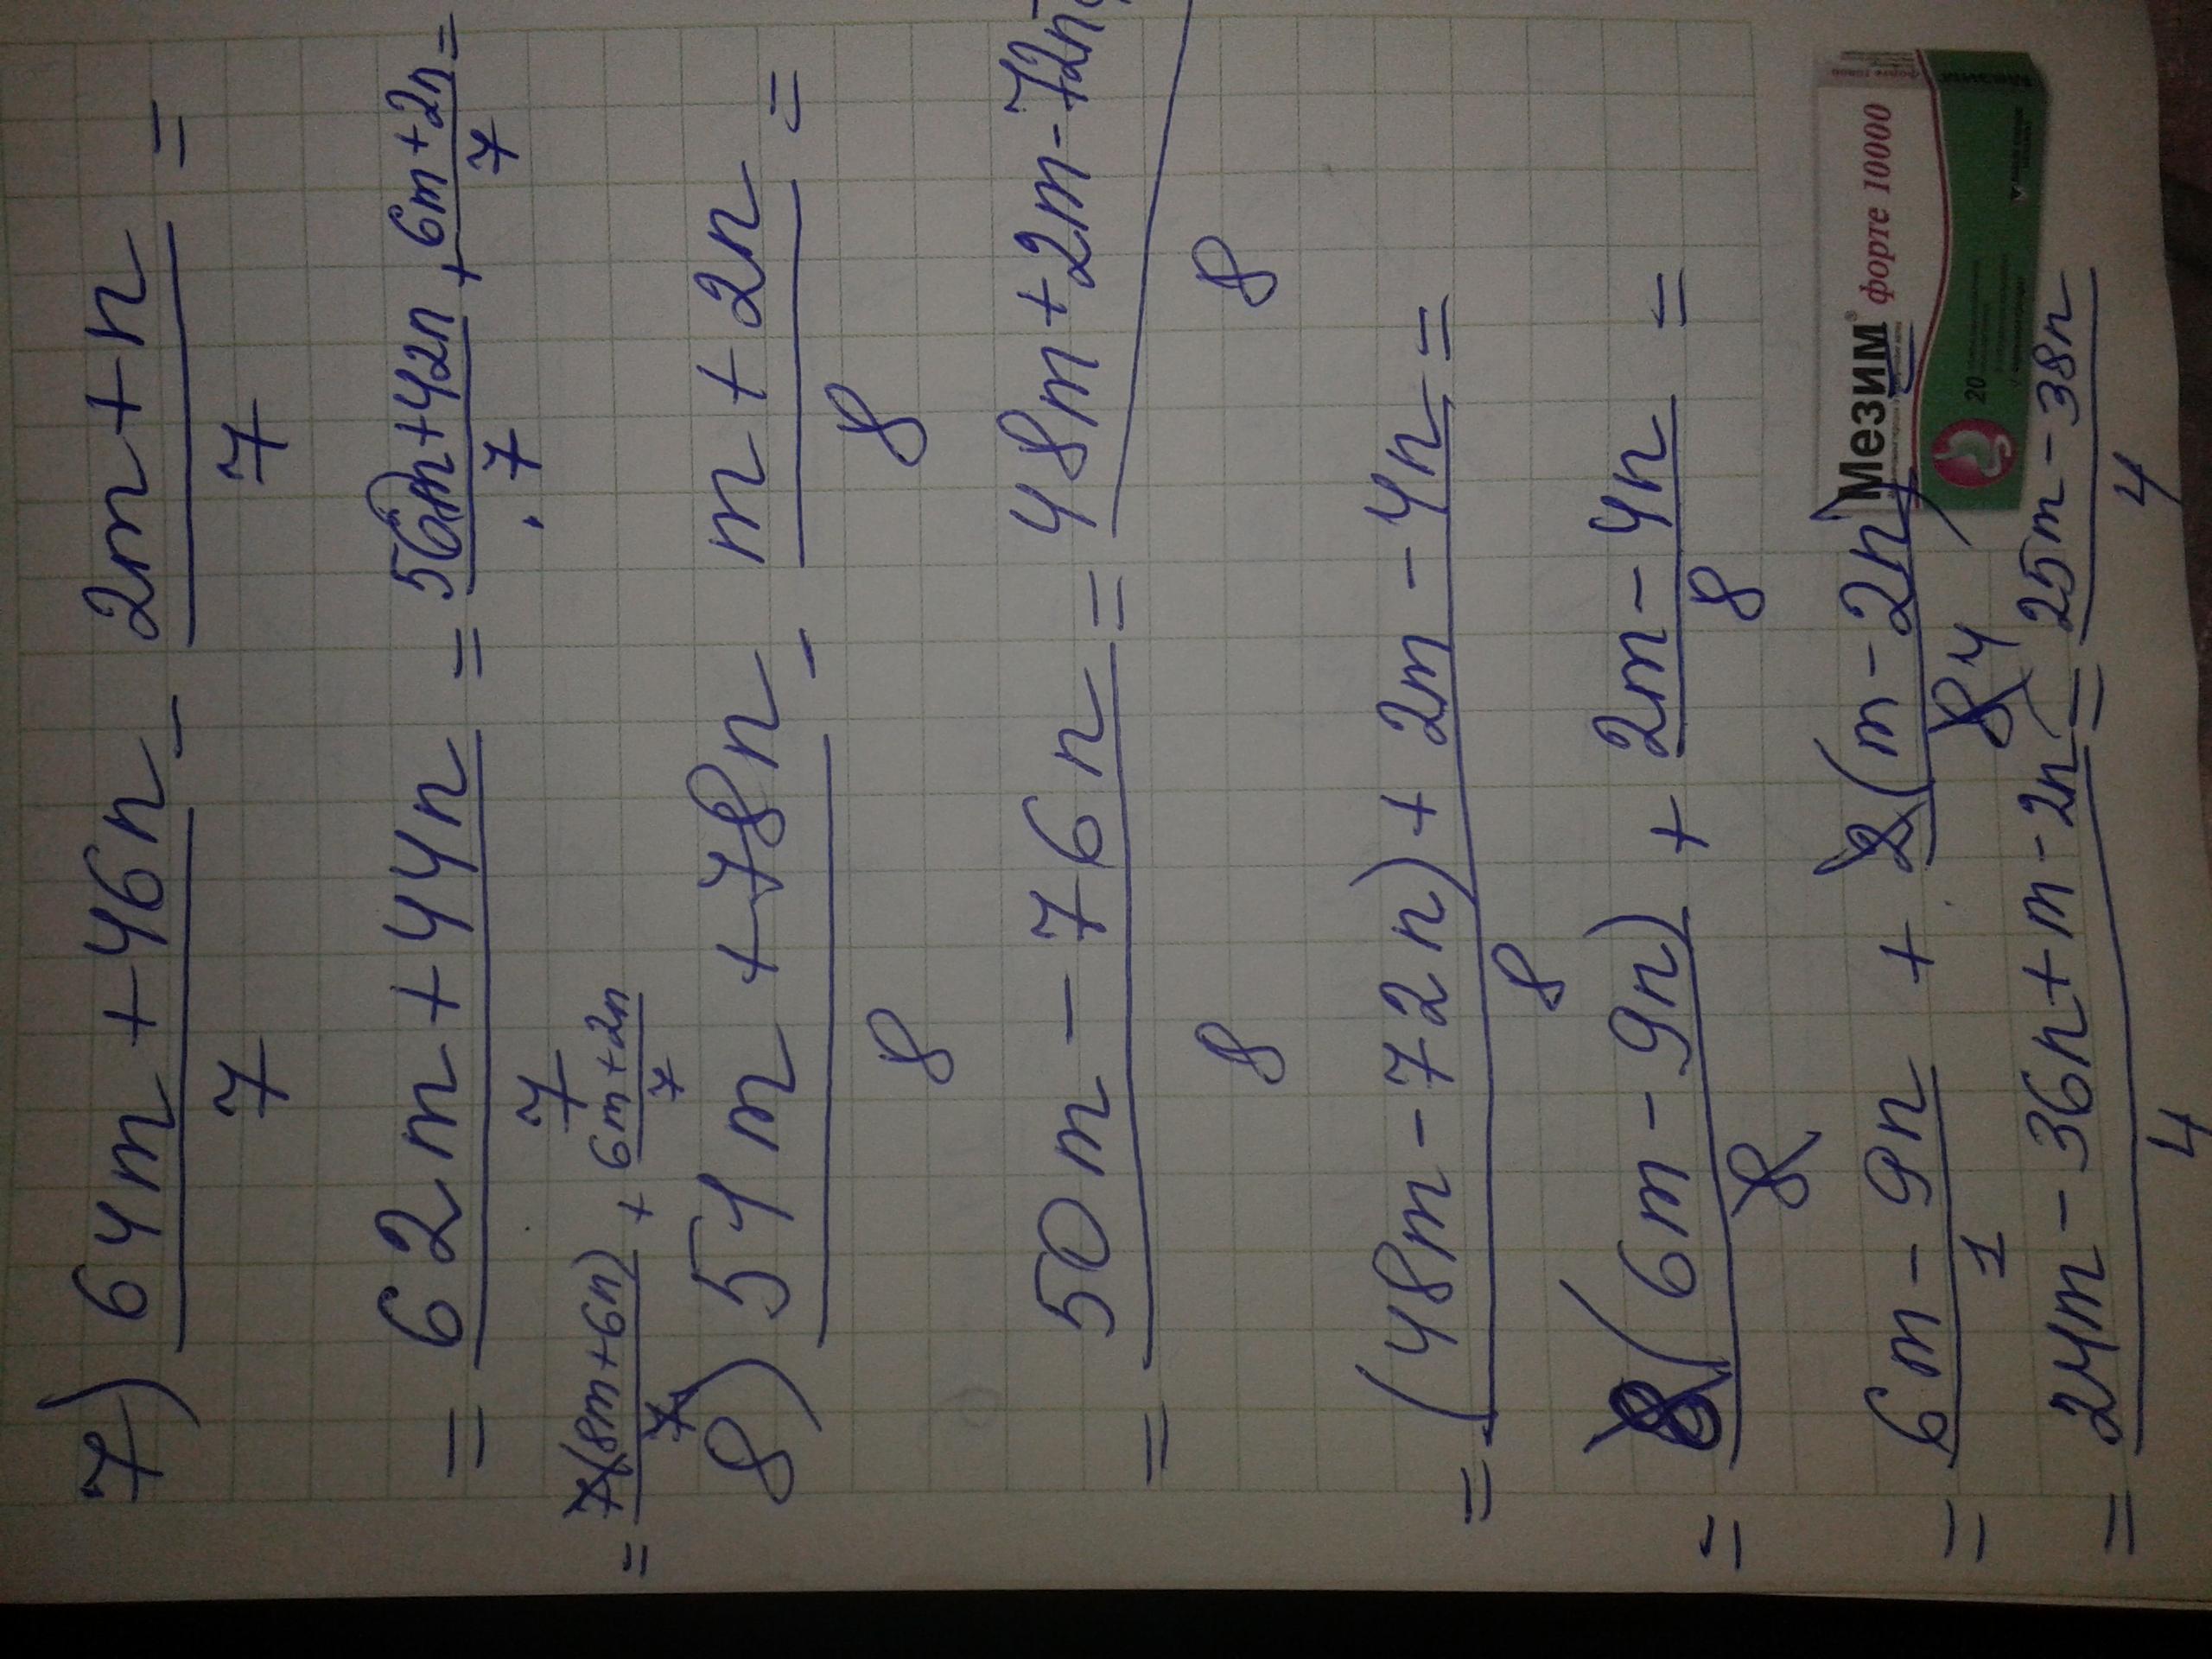 7) 64m + 46n / 7 - 2m + n / 7 =
= 62m + 44n / 7 = 56m + 42n / 7 + 6m + 2n / 7 =
= 7(8m + 6n) / 7 + 6m + 2n / 7
8) 54m + 78n / 8 - m + 2n / 8 =
= 50m - 76n / 8 = 48m + 2m - 72n / 8
= (48m - 72n) + 2m - 4n / 8 =
= 8(6m - 9n) / 8 + 2m - 4n / 8 =
= 6m - 9n / 1 + 2(m - 2n) / 8 4
= 24m - 36n + m - 2n / 4 = 25m - 38n / 4
Мезим® форте 10000
20